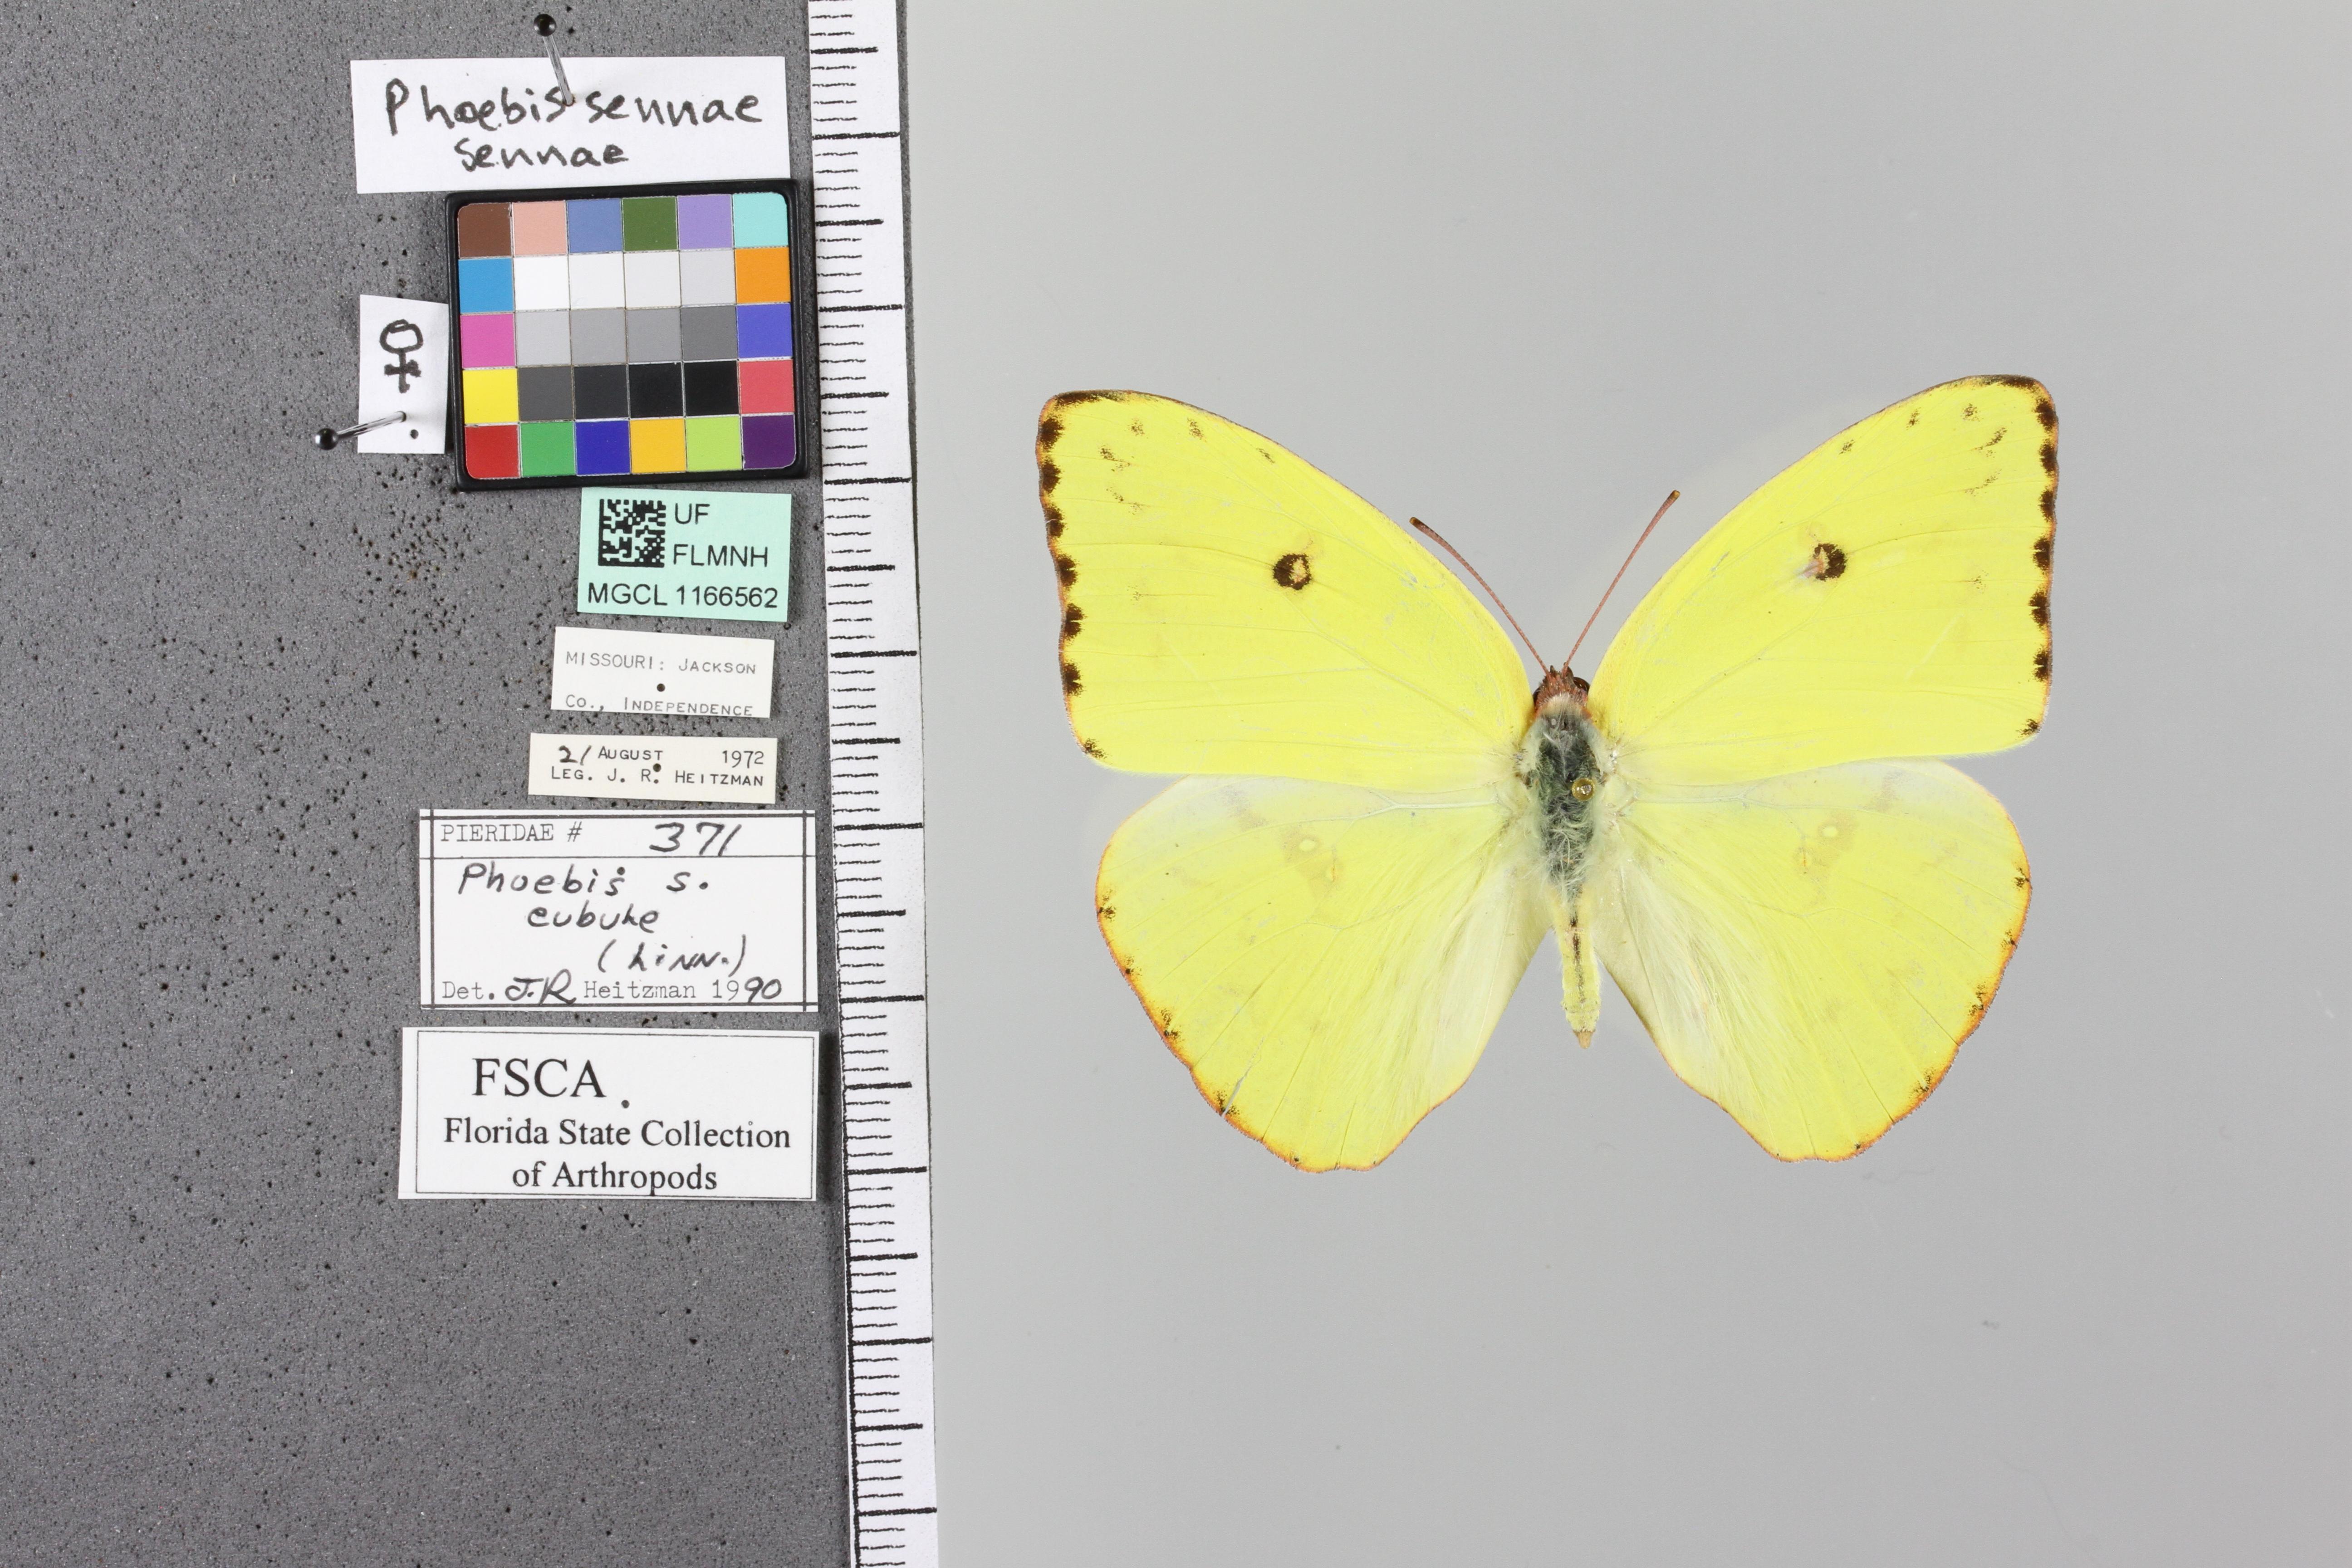 Phoebis sennae
sennae
♀
UF
FLMNH
MGCL 1166562
MISSOURI: JACKSON
CO., INDEPENDENCE
21 AUGUST 1972
LEG. J. R. HEITZMAN
PIERIDAE # 371
Phoebis s.
eubule
(Linn.)
Det. J.R. Heitzman 1990
FSCA
Florida State Collection
of Arthropods